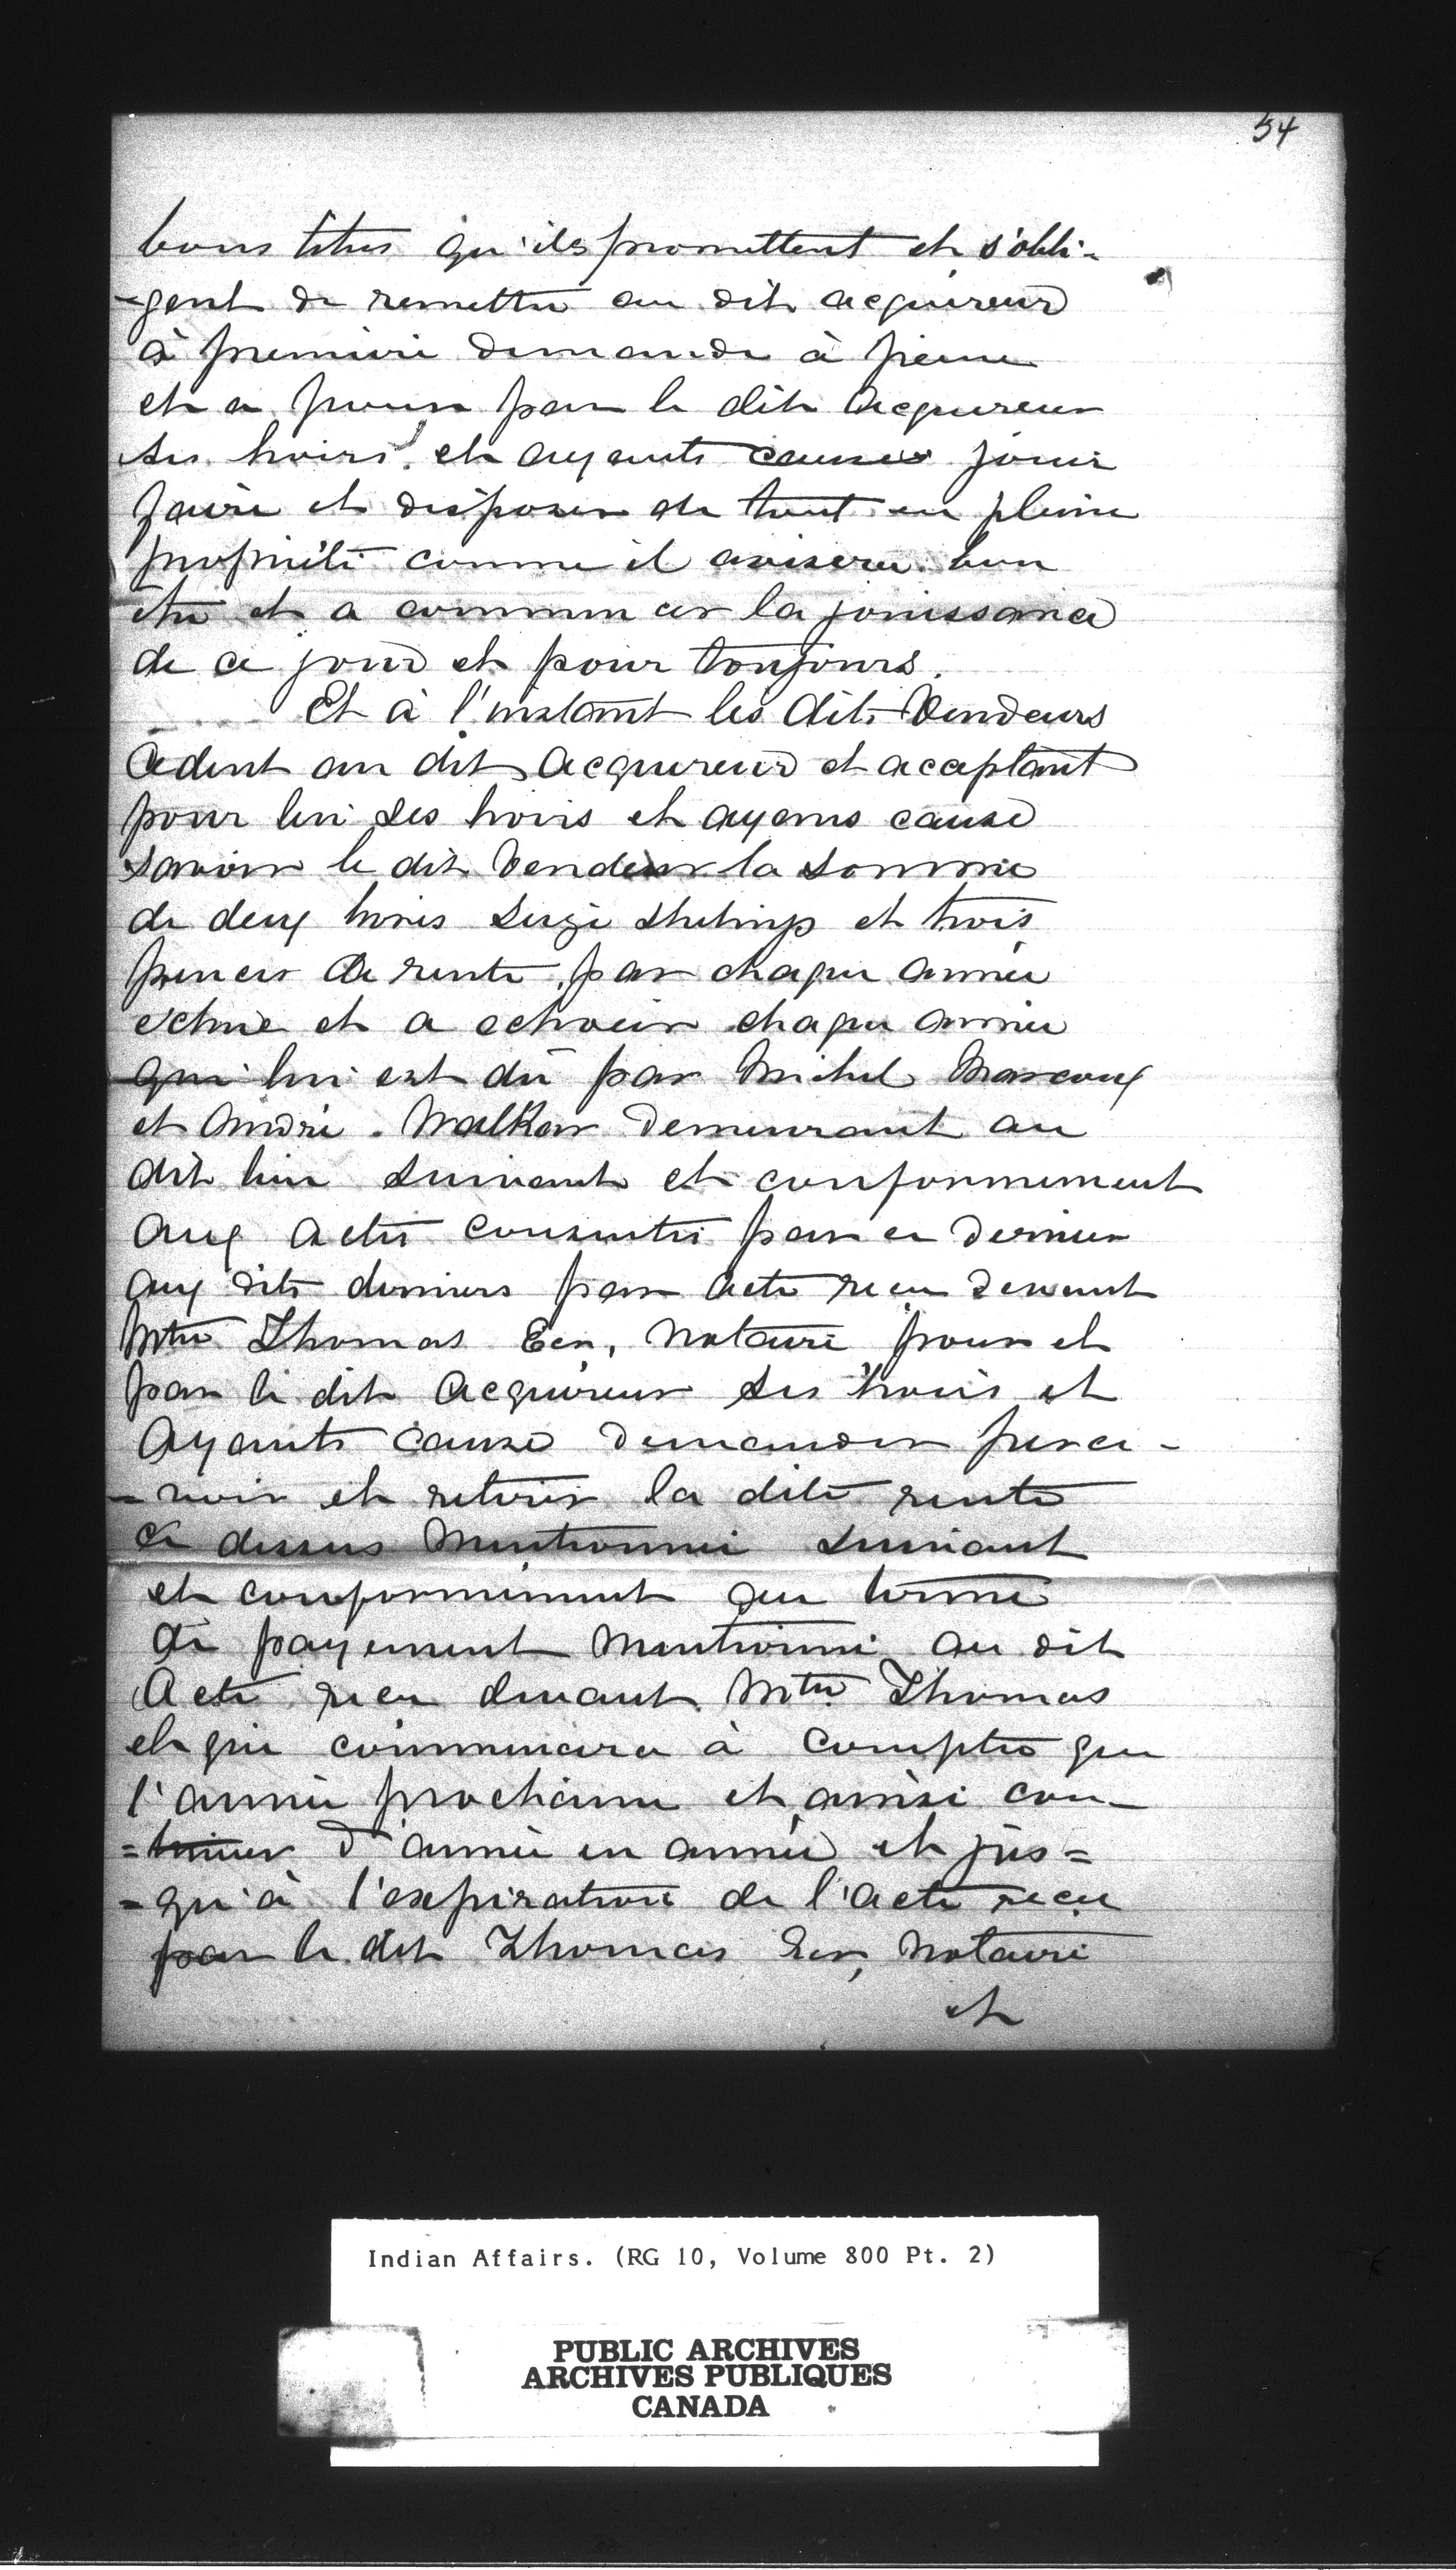 54
bons titres qu'ils promettent et s'obli-
-gent de remettre au dit acquereur
à première demande à peine
et a pour par le dit Acquereur
ses hoirs et ayants causes jouir
faire et disposer de tout en pleine
propriété comme il avisera bon
être et a commencer la jouissance
de ce jour et pour toujours.
Et à l'instant les dits Vendeurs
cèdent au dit Acquereur et acceptant
pour lui ses hoirs et ayans cause
savoir le dit Vendeur la somme
de deux livres seize shelings et trois
pences de rente par chaque année
echue et a echeoir chaque année
qui lui est dû par Michel Marcoux
et André Walker demeurant au
dit lieu suivant et conformement
aux actes consentis par ce dernier
aux dits derniers par acte recu devant
Mtre Thomas Ecr, Notaire pour et
par le dit Acquéreur ses hoirs et
Ayants cause demander perce-
-voir et retirer la dite rente
ci dessus mentionnée suivant
et conformément au terme
de payement mentionné au dit
Acte recu devant Mtre Thomas
et qui commencera à compter que
l'année prochaine et ainsi con-
=tinuer d'année en année et jus=
=qu'à l'expiration de l'acte reçu
par le dit Thomas Ecr, Notaire
et
Indian Affairs. (RG 10, Volume 800 Pt. 2)
PUBLIC ARCHIVES
ARCHIVES PUBLIQUES
CANADA